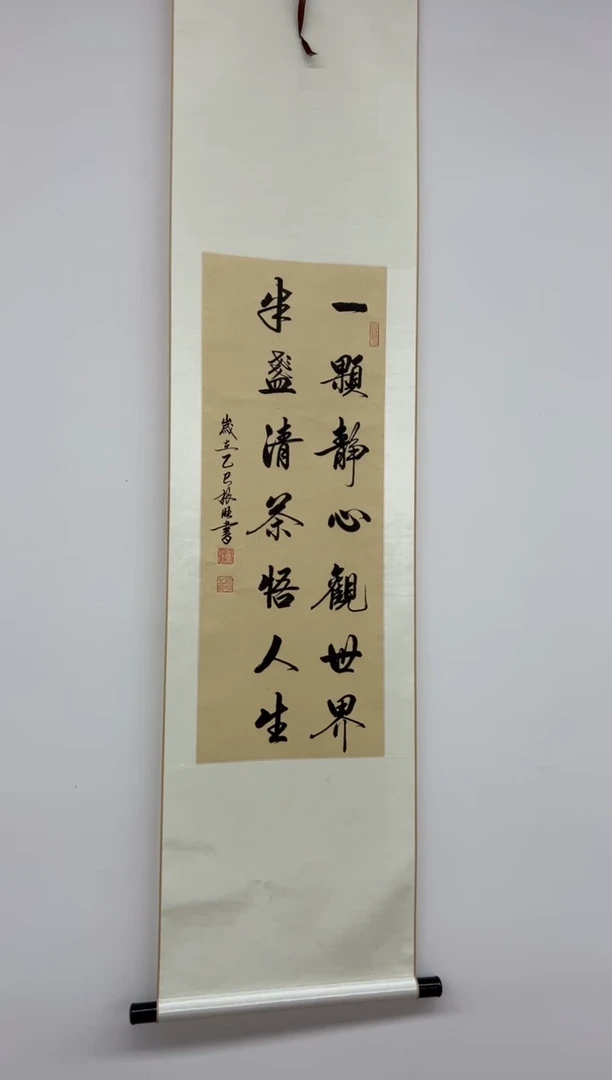 一顆靜心觀世界
半盞清茶悟人生
歲在乙巳振旺書